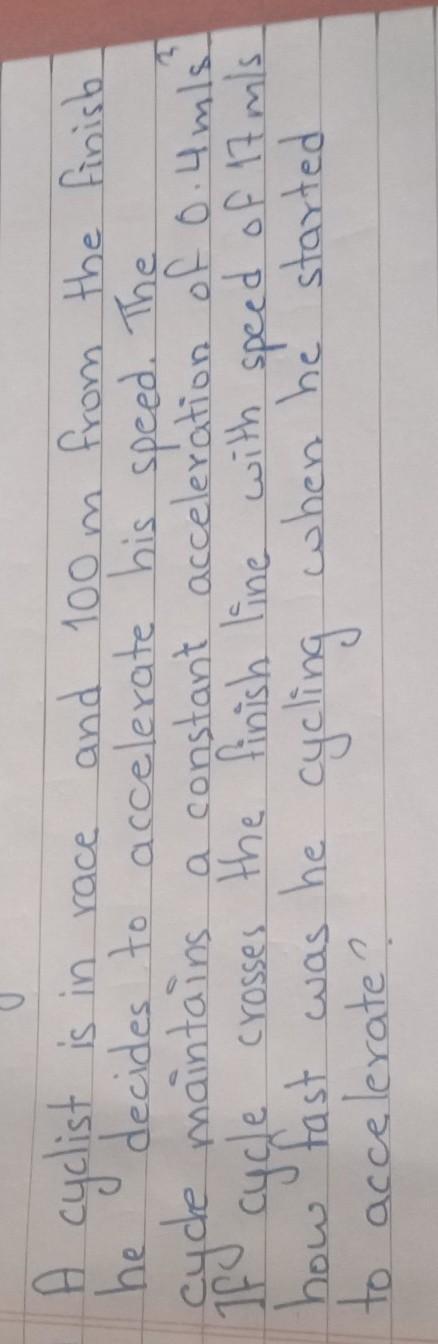 A cyclist is in race and 100 m from the finish
he decides to accelerate his speed. The
cycle maintains a constant acceleration of 0.4 m/s²
If cycle crosses the finish line with speed of 17 m/s
how fast was he cycling when he started
to accelerate?